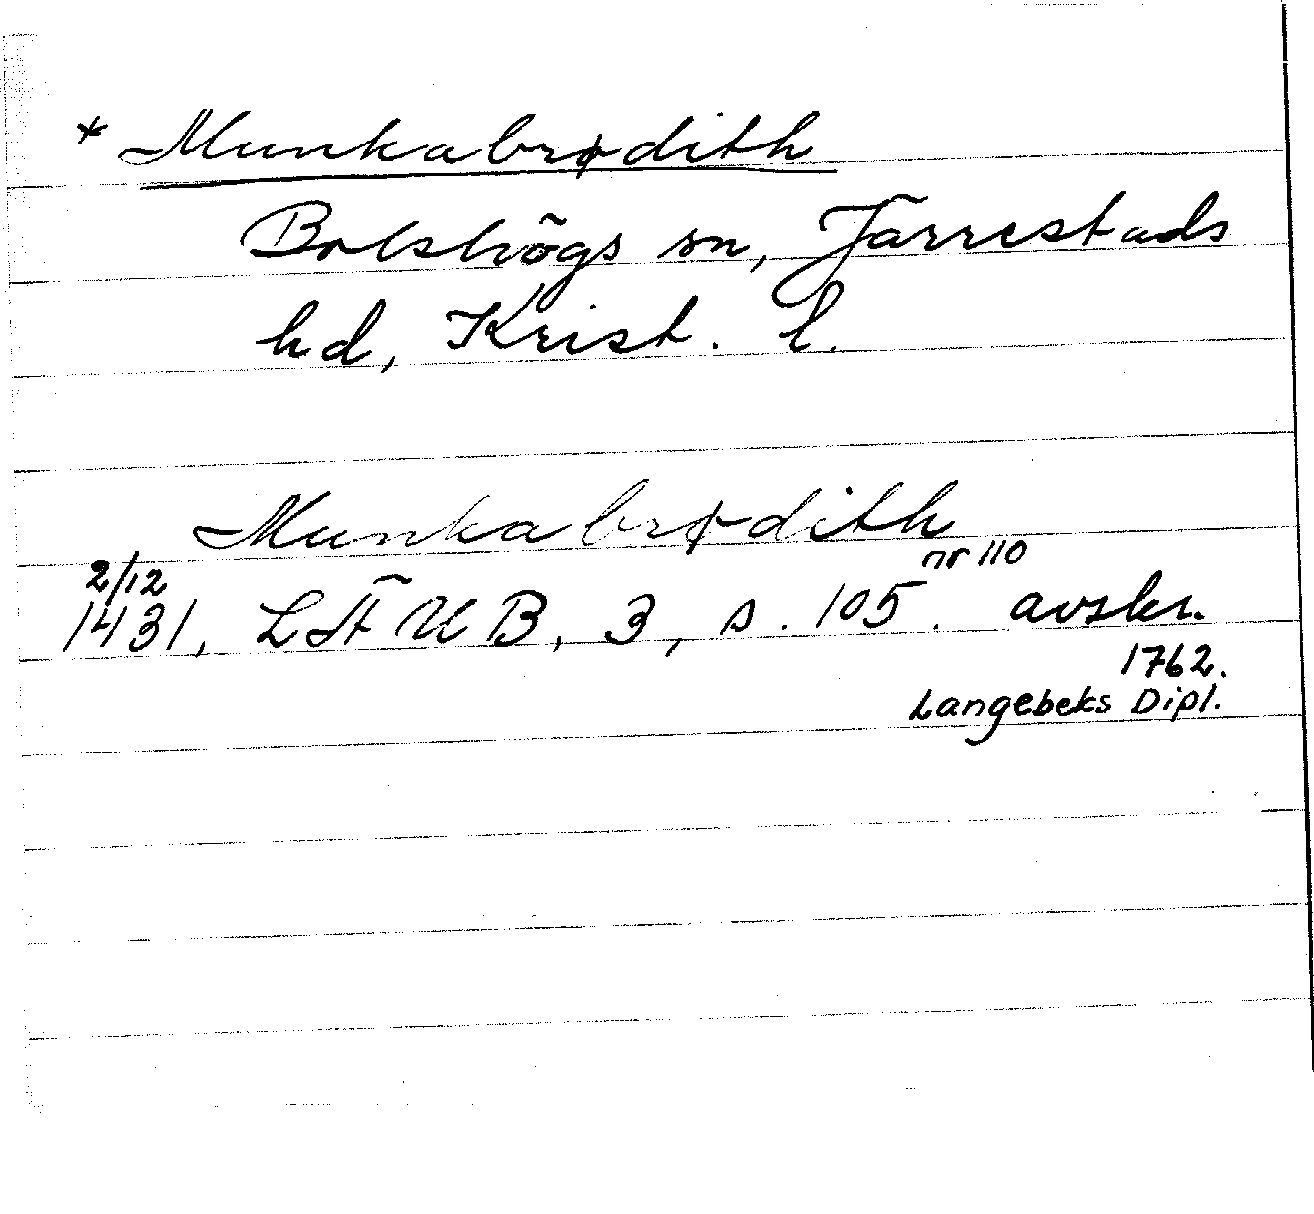 * Munkabrødith
Bolshögs sn, Järrestads
hd, Krist. l.
Munkabrødith
2/12 nr 110
1431, LÄUB, 3, s. 105. avskr.
1762.
Langebeks Dipl.